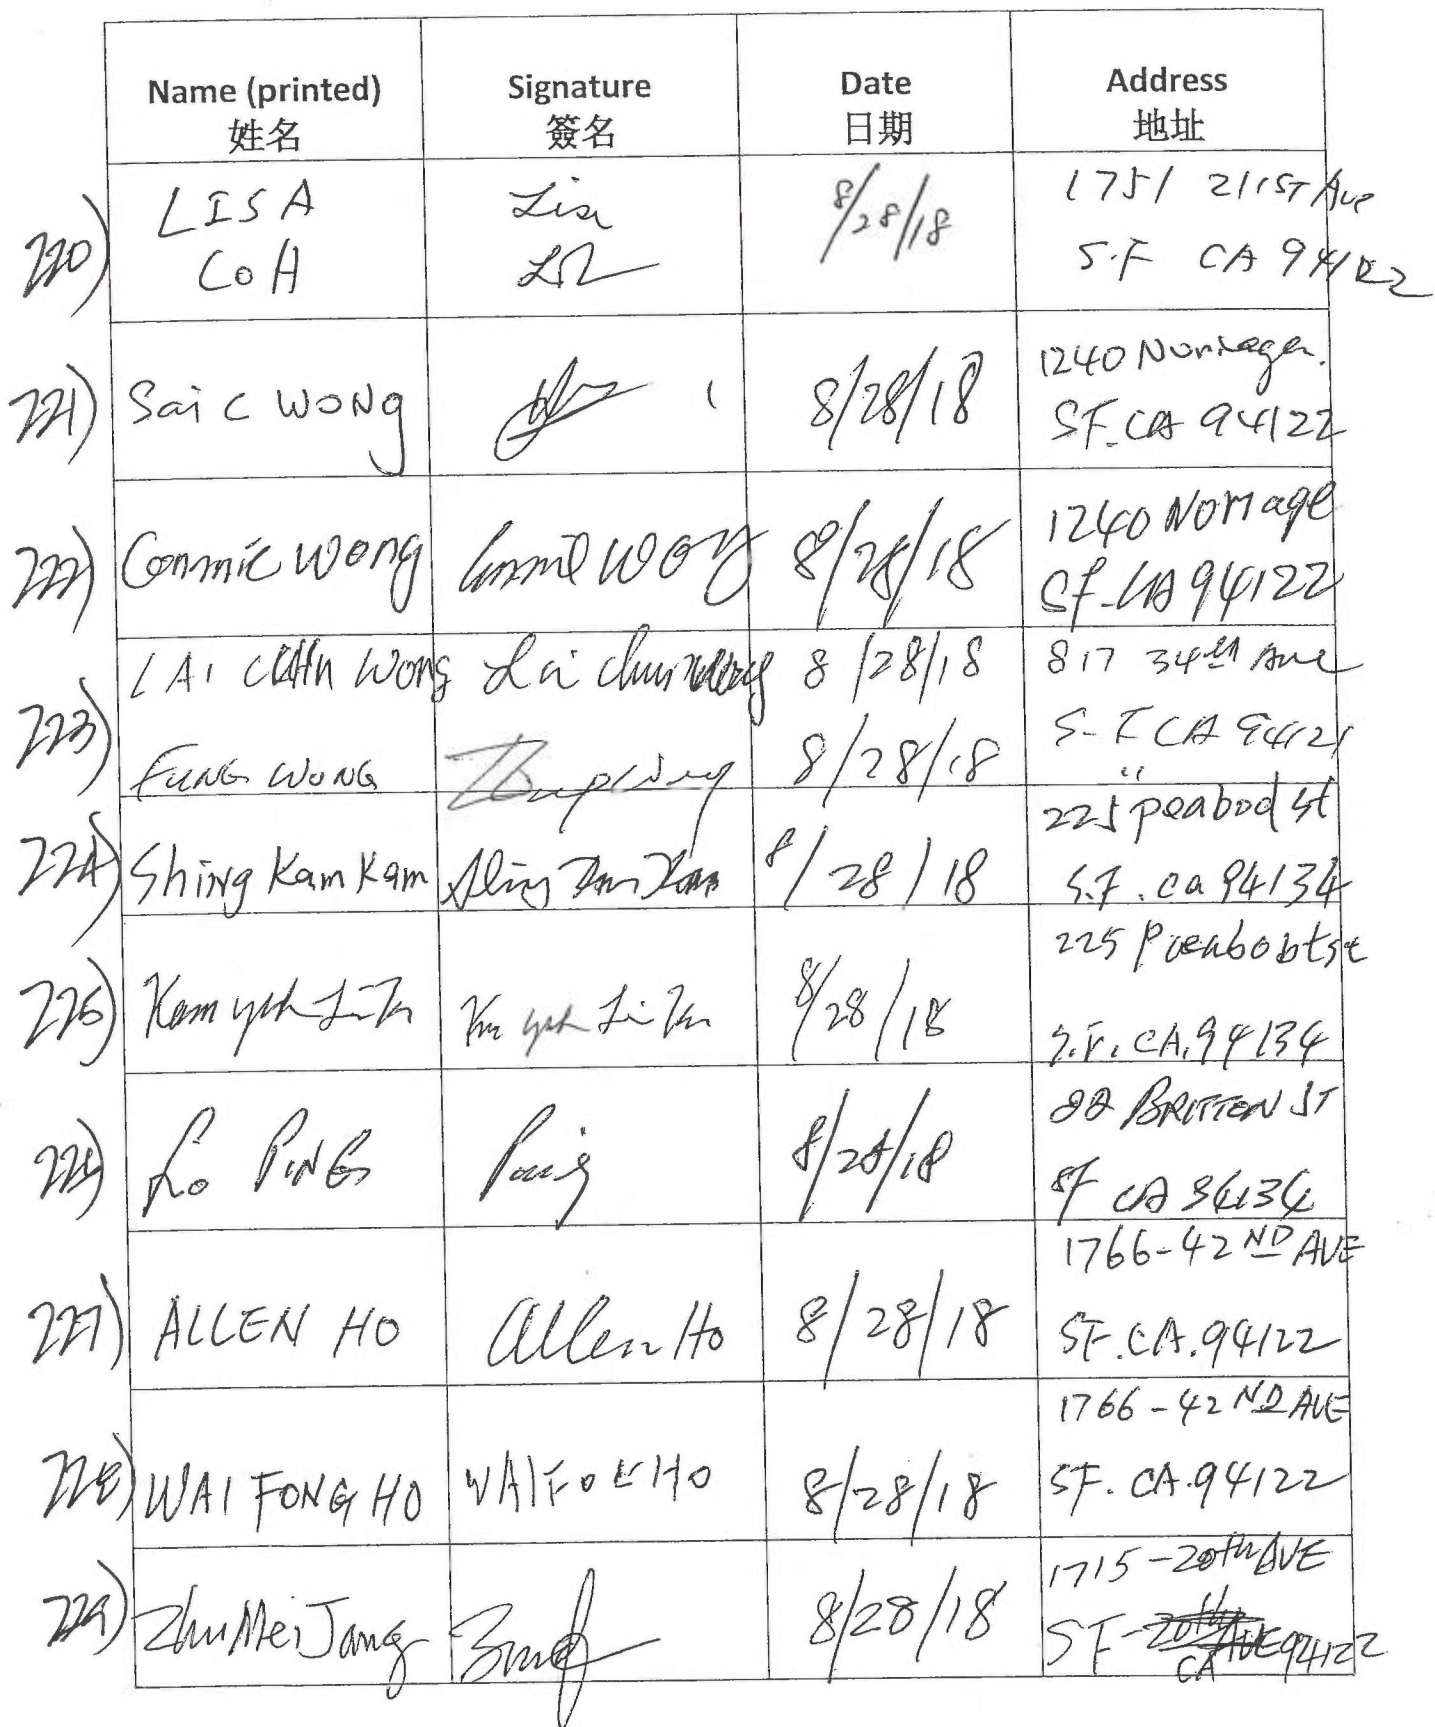 Name (printed) Signature Date Address
姓名 簽名 日期 地址
220) LISA Lisa 8/28/18 1751 211ST Ave
COH S.F CA 94122
221) Sai C WONG 8/28/18 1240 Noriega.
SF. CA 94122
222) Connie Wong Connie Wong 8/28/18 1240 Noriage
SF. CA 94122
223) LAI CHUN WONG Lai Chun Wong 8/28/18 817 34th Ave
S.F CA 94121
FUNG WONG 8/28/18 "
224) Shing Kam Kam Shing Kam Kam 8/28/18 225 peabod st
S.F. ca 94134
8/28/18 225 st
S.F. CA. 94134
Lo PING Ping 8/28/18 88 BRITTON ST
SF CA 94134
227) ALLEN HO Allen Ho 8/28/18 1766-42ND AVE
SF. CA. 94122
228) WAI FONG HO 8/28/18 1766-42ND AVE
SF. CA. 94122
229) Zhu Mei Jang 8/28/18 1715-20th AVE
SF CA 94122